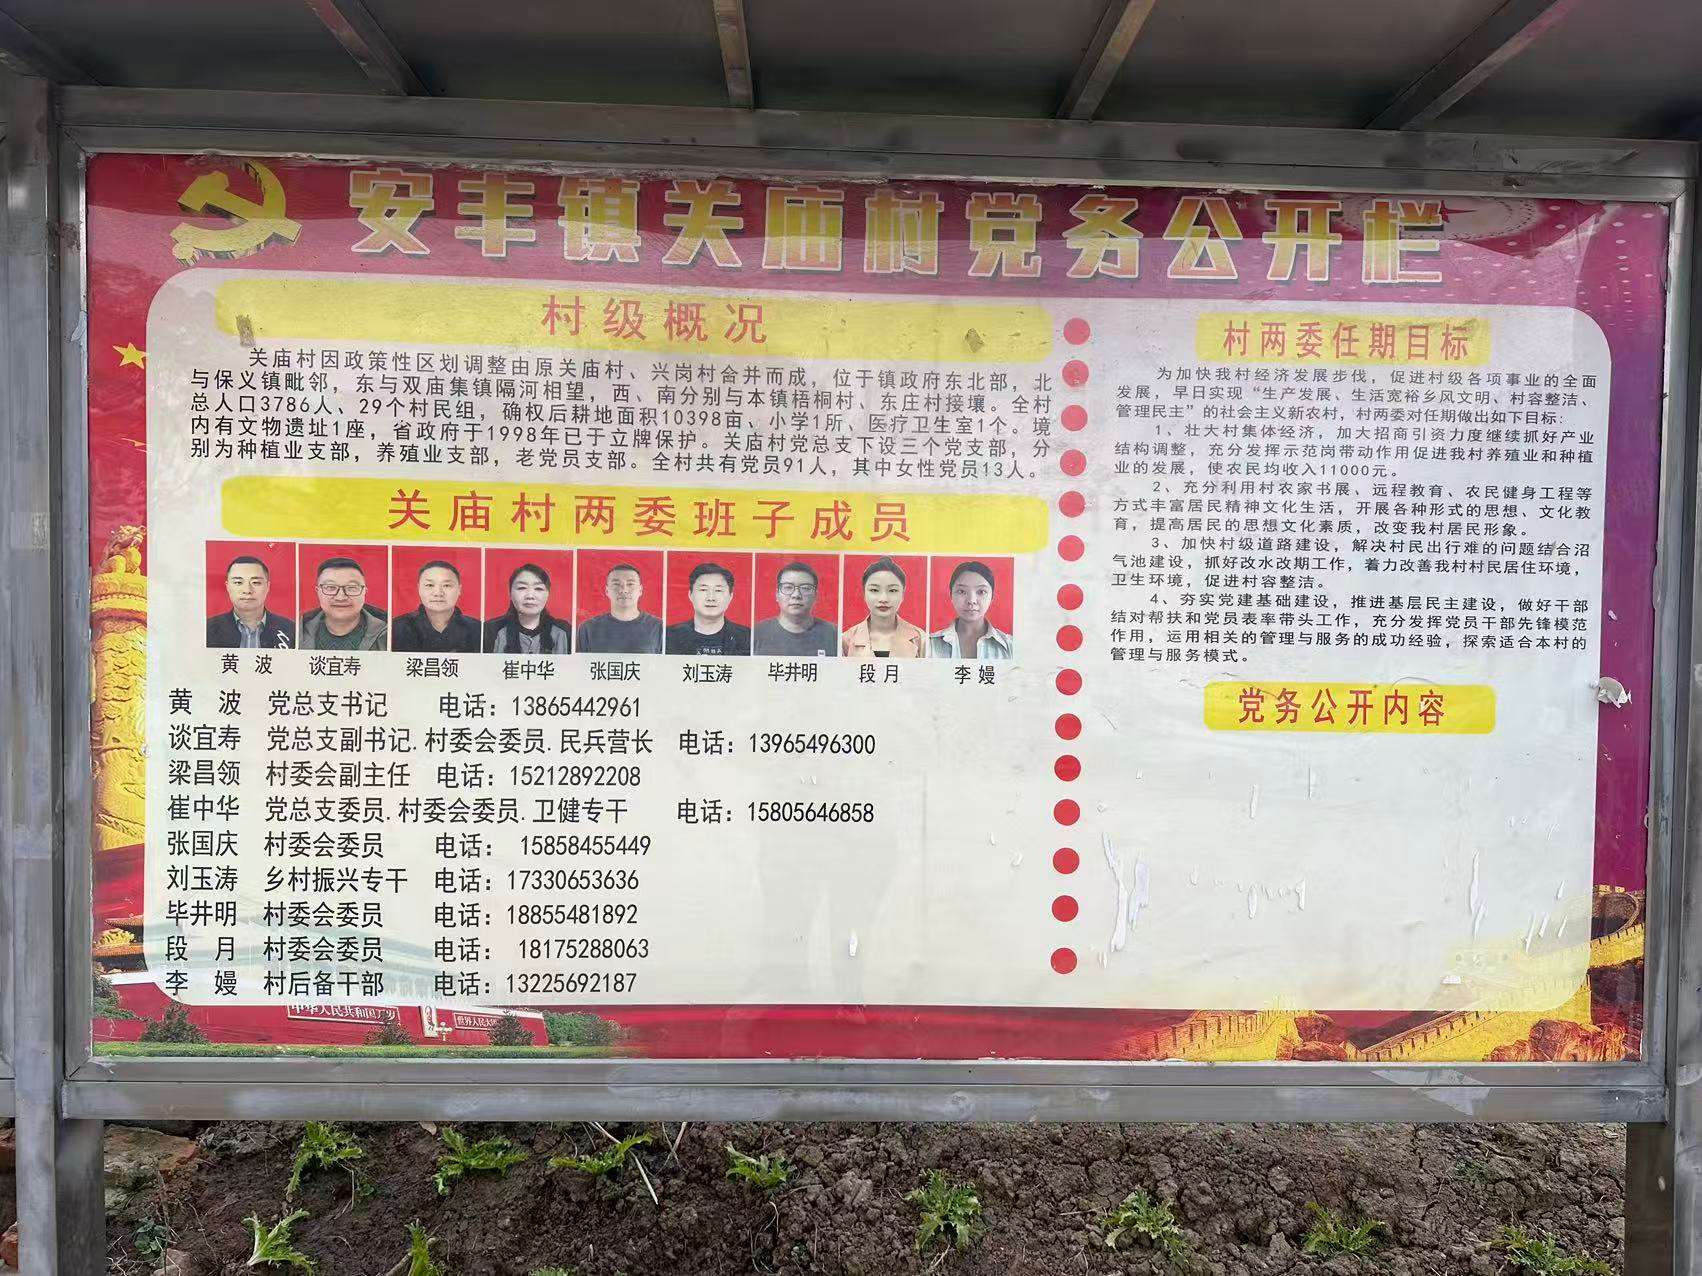 安丰镇关庙村党务公开栏
村级概况
关庙村因政策性区划调整由原关庙村、兴岗村合并而成，位于镇政府东北部，北
与保义镇毗邻，东与双庙集镇隔河相望，西、南分别与本镇梧桐村、东庄村接壤。全村
总人口3786人、29个村民组，确权后耕地面积10398亩、小学1所、医疗卫生室1个。境
内有文物遗址1座，省政府于1998年已于立牌保护。关庙村党总支下设三个党支部，分
别为种植业支部，养殖业支部，老党员支部。全村共有党员91人，其中女性党员13人。
关庙村两委班子成员
黄 波 谈宜寿 梁昌领 崔中华 张国庆 刘玉涛 毕井明 段 月 李 嫚
黄 波 党总支书记 电话：13865442961
谈宜寿 党总支副书记.村委会委员.民兵营长 电话：13965496300
梁昌领 村委会副主任 电话：15212892208
崔中华 党总支委员.村委会委员.卫健专干 电话：15805646858
张国庆 村委会委员 电话： 15858455449
刘玉涛 乡村振兴专干 电话：17330653636
毕井明 村委会委员 电话：18855481892
段 月 村委会委员 电话： 18175288063
李 嫚 村后备干部 电话：13225692187
村两委任期目标
为加快我村经济发展步伐，促进村级各项事业的全面
发展，早日实现“生产发展、生活宽裕乡风文明、村容整洁、
管理民主”的社会主义新农村，村两委对任期做出如下目标：
1、壮大村集体经济，加大招商引资力度继续抓好产业
结构调整，充分发挥示范岗带动作用促进我村养殖业和种植
业的发展，使农民均收入11000元。
2、充分利用村农家书展、远程教育、农民健身工程等
方式丰富居民精神文化生活，开展各种形式的思想、文化教
育，提高居民的思想文化素质，改变我村居民形象。
3、加快村级道路建设，解决村民出行难的问题结合沼
气池建设，抓好改水改期工作，着力改善我村村民居住环境，
卫生环境，促进村容整洁。
4、夯实党建基础建设，推进基层民主建设，做好干部
结对帮扶和党员表率带头工作，充分发挥党员干部先锋模范
作用，运用相关的管理与服务的成功经验，探索适合本村的
管理与服务模式。
党务公开内容
中华人民共和国万岁
世界人民大团